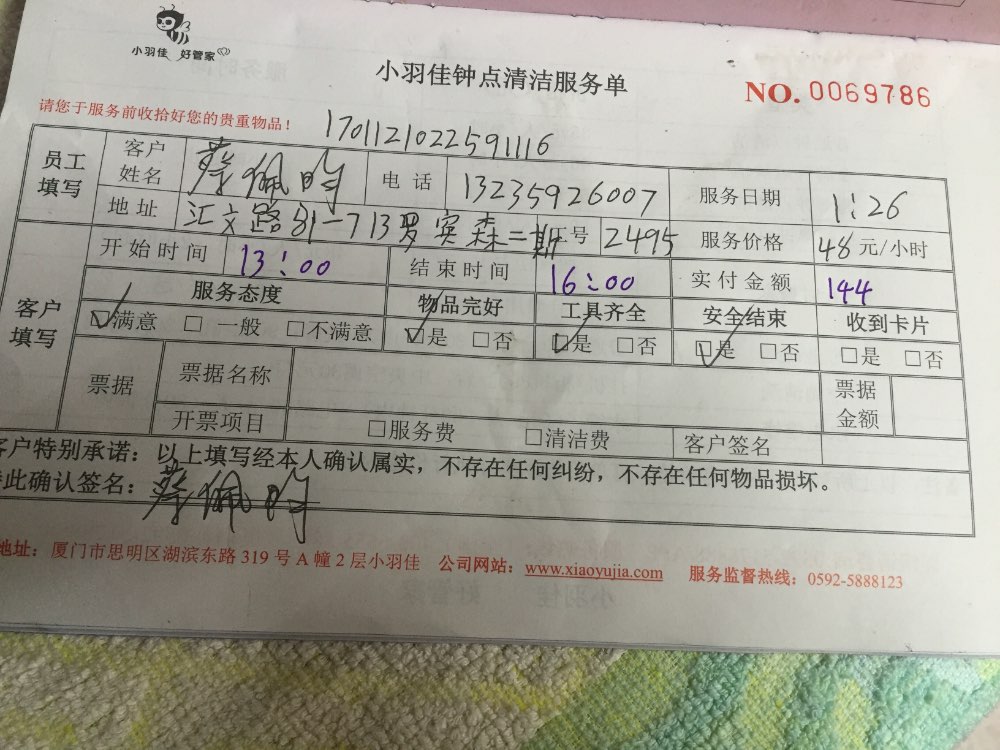 小羽佳 好管家
小羽佳钟点清洁服务单
NO. 0069786
请您于服务前收拾好您的贵重物品!
17011210225911116
员工填写 客户姓名 蔡佩 电话 13235926007 服务日期 1:26
地址 汇文路81-713罗宾森二期 工号 2495 服务价格 48元/小时
客户填写 开始时间 13:00 结束时间 16:00 实付金额 144
服务态度 物品完好 工具齐全 安全结束 收到卡片
☑满意 □一般 □不满意 ☑是 □否 ☑是 □否 ☑是 □否 □是 □否
票据 票据名称 票据金额
开票项目 □服务费 □清洁费 客户签名
客户特别承诺:以上填写经本人确认属实,不存在任何纠纷,不存在任何物品损坏。
此确认签名:蔡佩
地址:厦门市思明区湖滨东路319号A幢2层小羽佳 公司网站:www.xiaoyujia.com 服务监督热线:0592-5888123